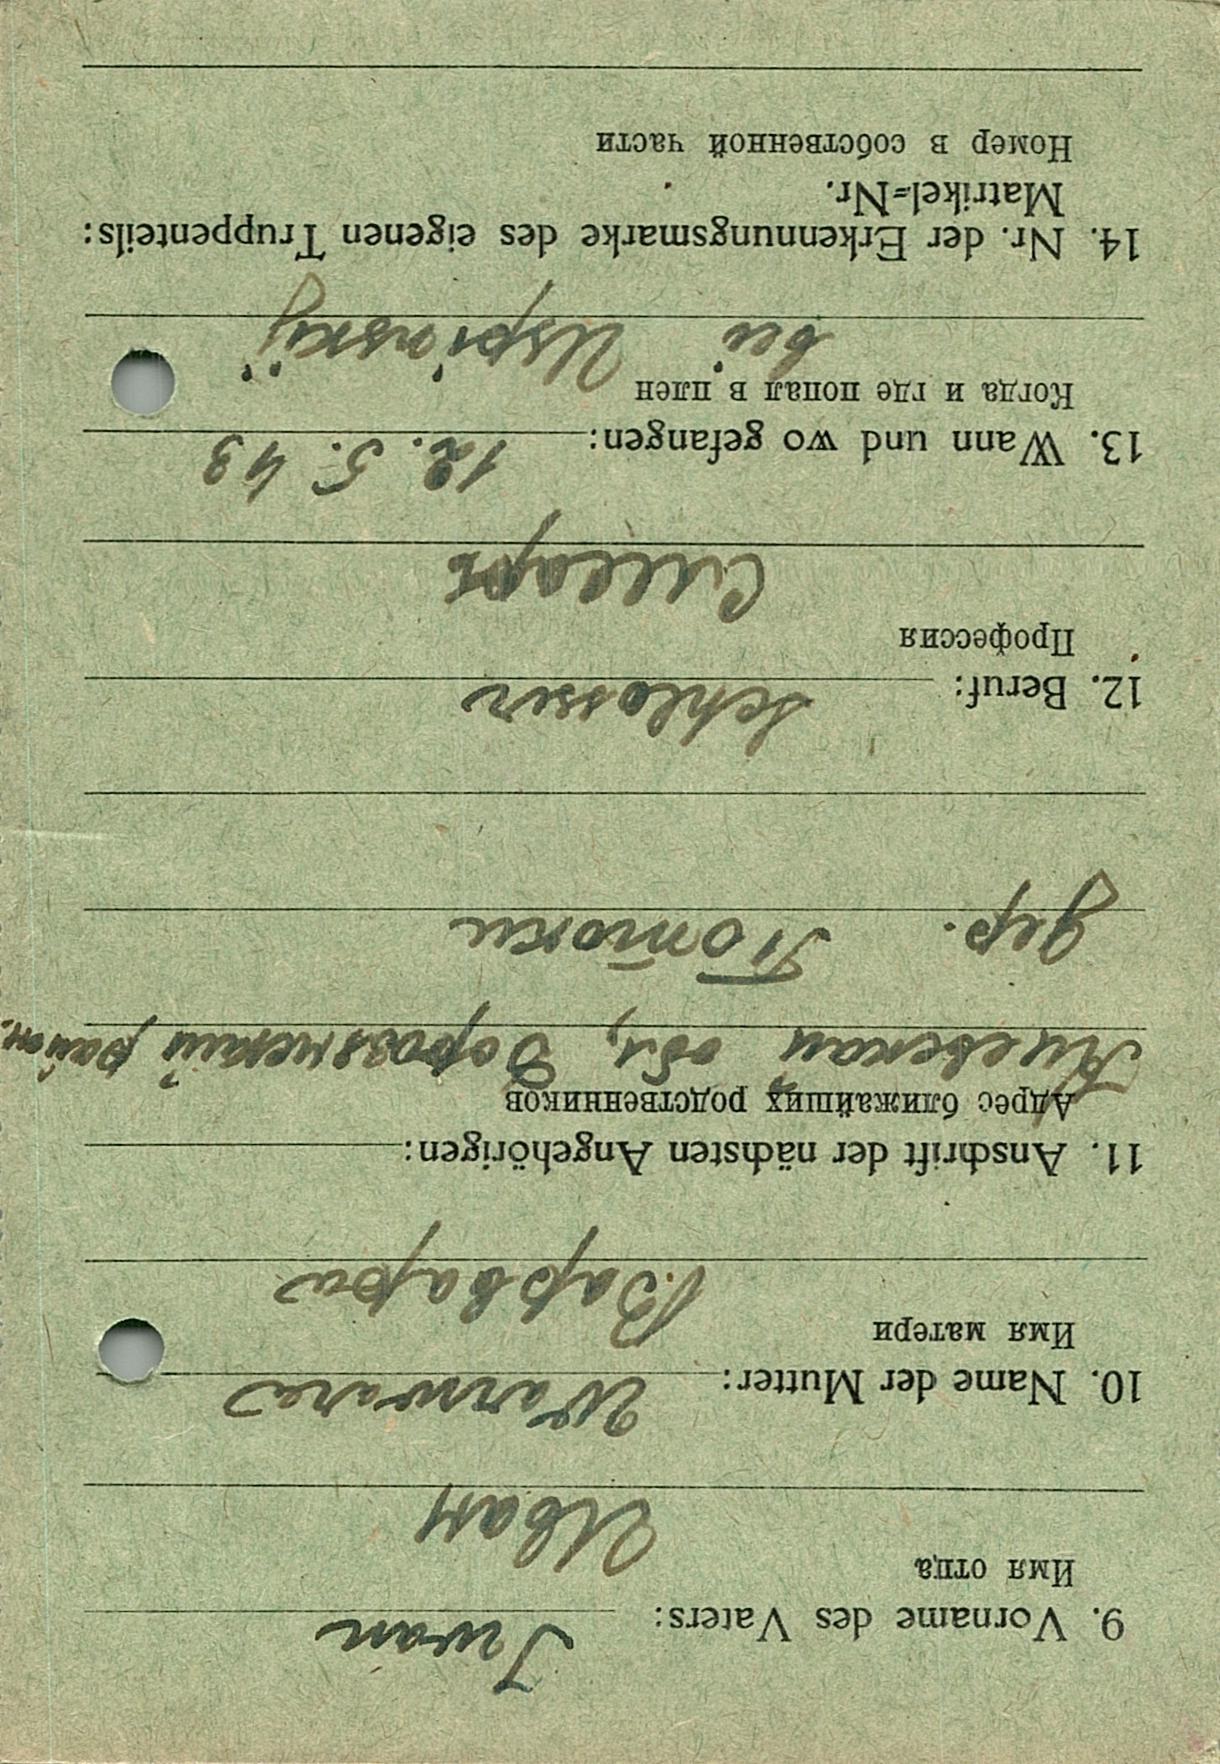 9. Vorname des Vaters: Iwan
Имя отца
Иван
10. Name der Mutter: Warwara
Имя матери
Варвара
11. Anschrift der nächsten Angehörigen:
Адрес ближайших родственников
Киевская обл,
дер. Потоки
12. Beruf: Schlosser
Профессия
Слесарь
13. Wann und wo gefangen: 12. 5. 43
Когда и где попал в плен
bei
14. Nr. der Erkennungsmarke des eigenen Truppenteils:
Matrikel=Nr.
Номер в собственной части